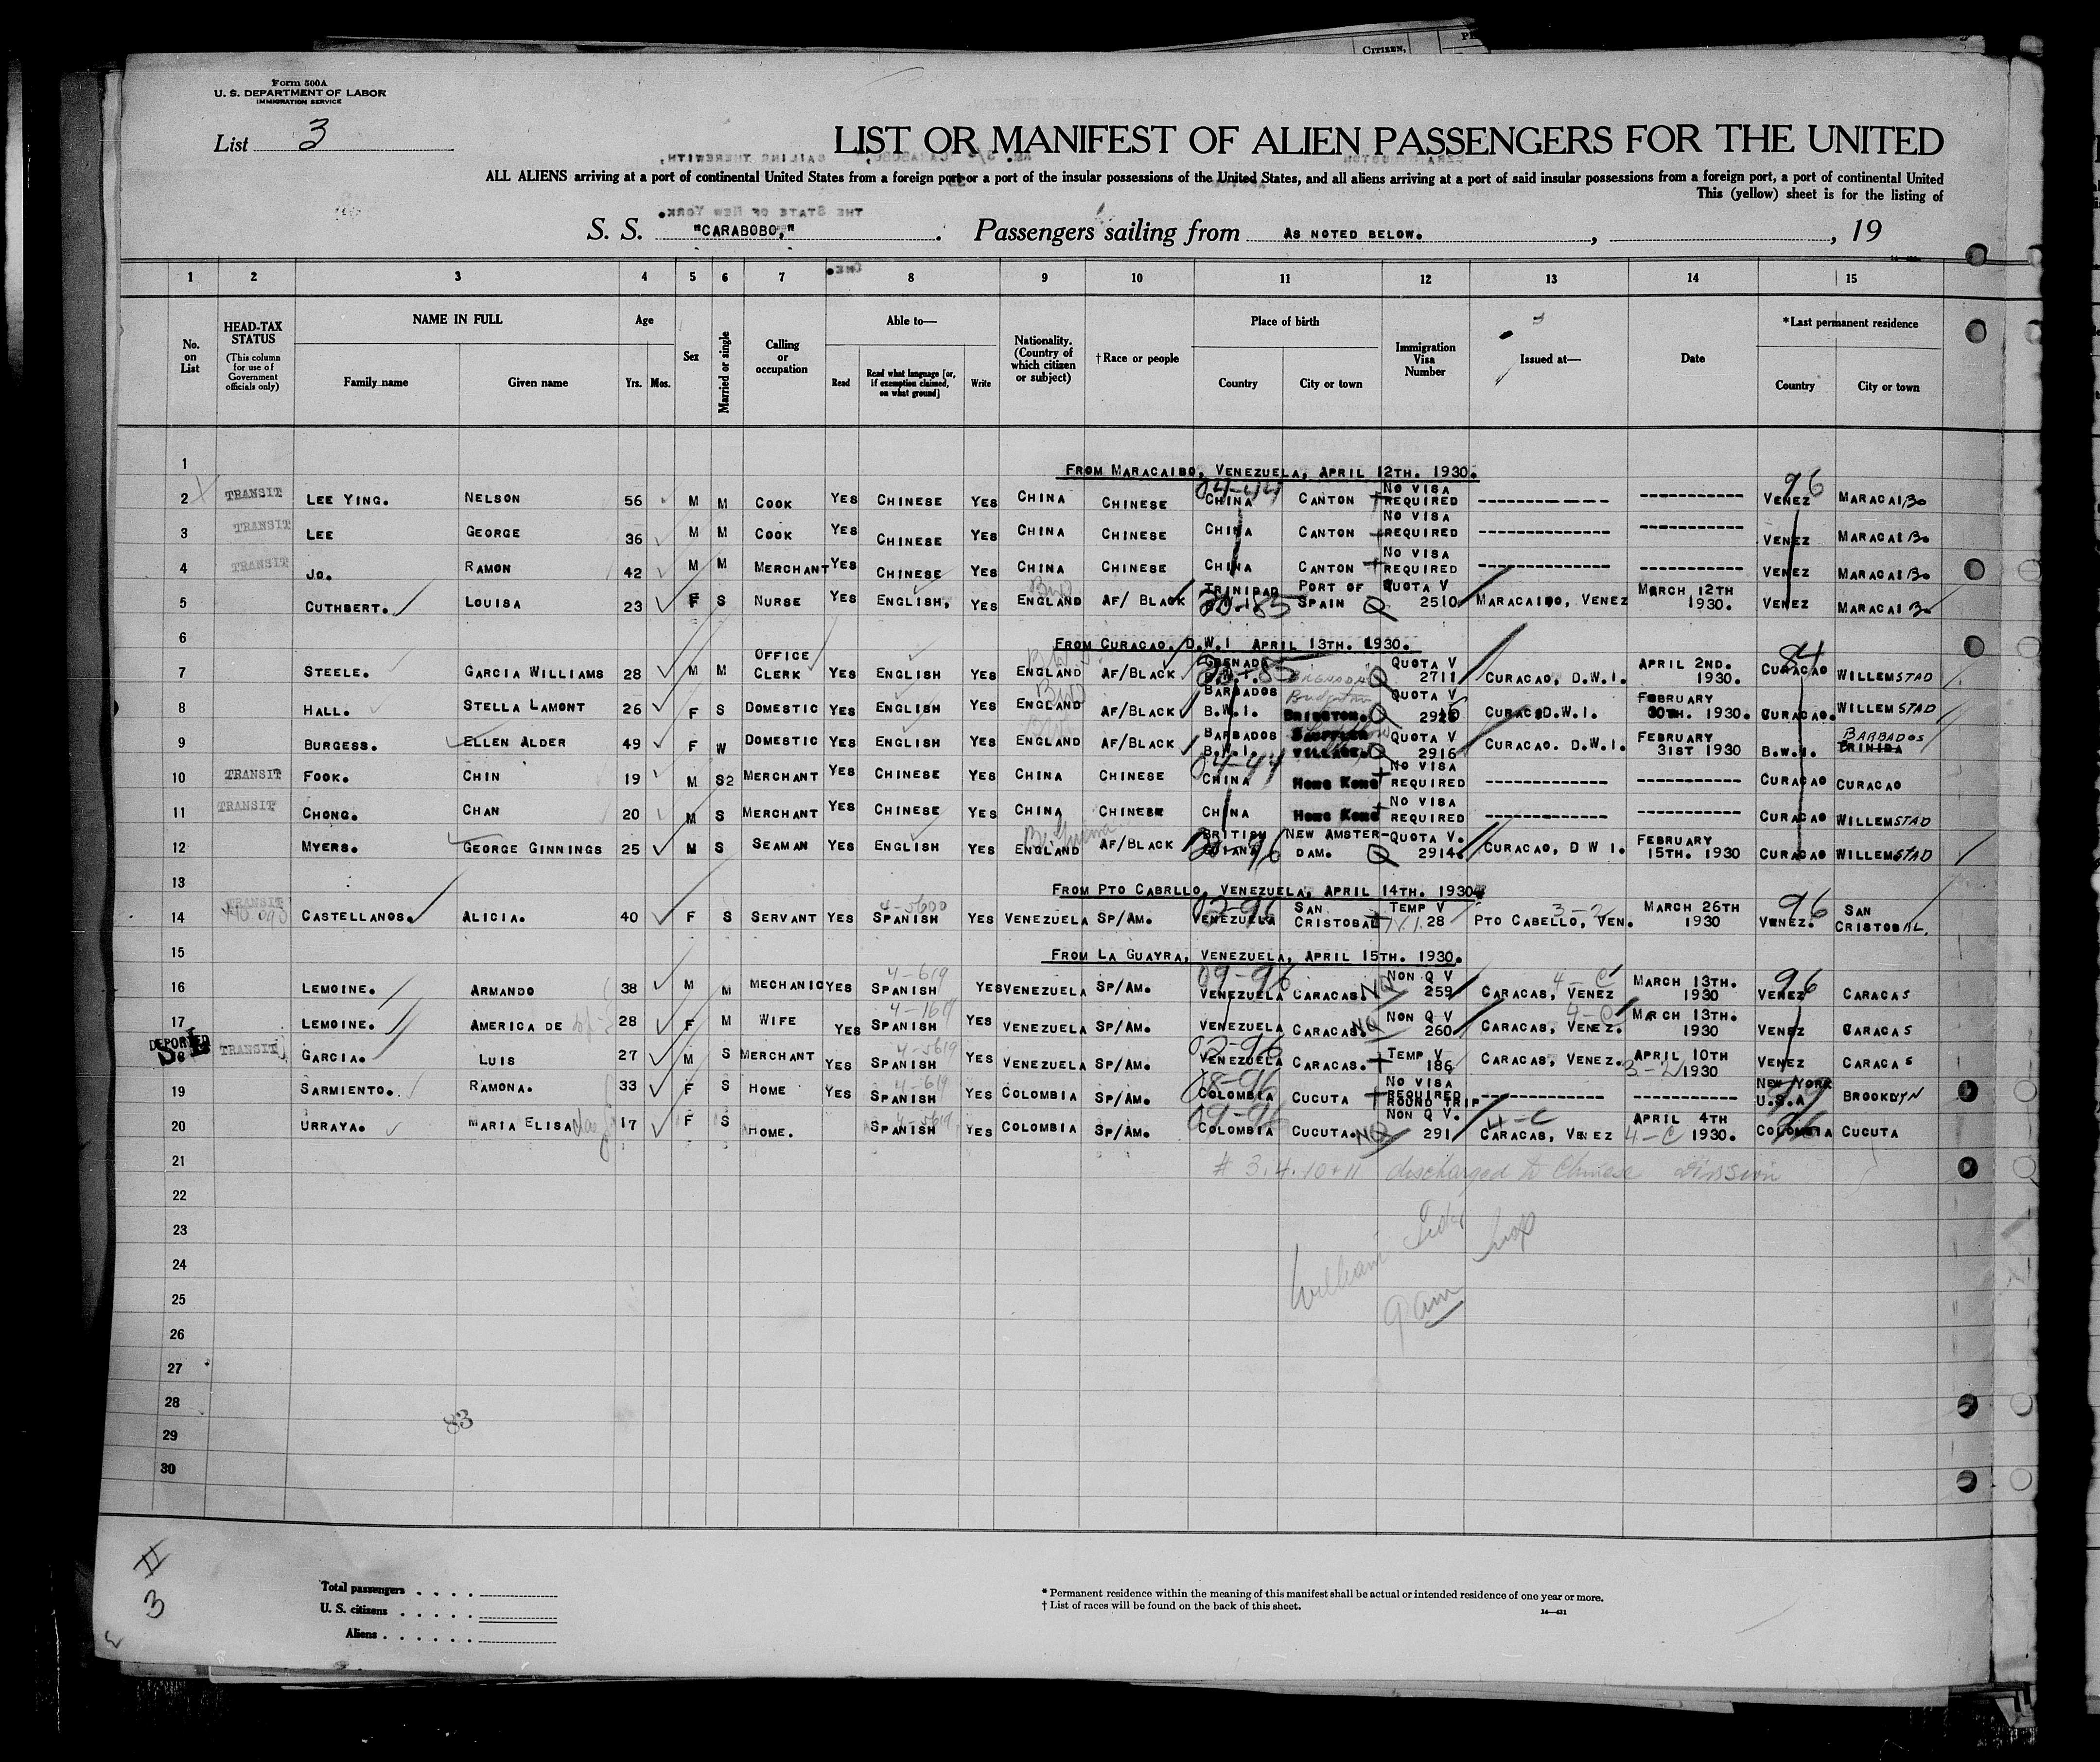 CITIZEN,
Form 500A
U. S. DEPARTMENT OF LABOR
IMMIGRATION SERVICE
List 3
LIST OR MANIFEST OF ALIEN PASSENGERS FOR THE UNITED
ALL ALIENS arriving at a port of continental United States from a foreign port or a port of the insular possessions of the United States, and all aliens arriving at a port of said insular possessions from a foreign port, a port of continental United
This (yellow) sheet is for the listing of
S. S. "CARABOBO," . Passengers sailing from AS NOTED BELOW. , , 19
1 2 3 4 5 6 7 8 9 10 11 12 13 14 15
No. on List HEAD-TAX STATUS (This column for use of Government officials only) NAME IN FULL Family name Given name Age Yrs. Mos. Sex Married or single Calling or occupation Able to— Read Read what language [or, if exemption claimed, on what ground] Write Nationality. (Country of which citizen or subject) †Race or people Place of birth Country City or town Immigration Visa Number Issued at— Date *Last permanent residence Country City or town
1 FROM MARACAIBO, VENEZUELA, APRIL 12TH. 1930.
2 TRANSIT LEE YING. NELSON 56 M M COOK YES CHINESE YES CHINA CHINESE 04-44 CHINA CANTON NO VISA REQUIRED ------------ ---------- 96 VENEZ MARACAIBO
3 TRANSIT LEE GEORGE 36 M M COOK YES CHINESE YES CHINA CHINESE CHINA CANTON NO VISA REQUIRED ------------ ---------- VENEZ MARACAIBO
4 TRANSIT JO. RAMON 42 M M MERCHANT YES CHINESE YES CHINA CHINESE CHINA CANTON NO VISA REQUIRED ------------ ---------- VENEZ MARACAIBO
5 CUTHBERT. LOUISA 23 F S NURSE YES ENGLISH, YES ENGLAND BWI AF/ BLACK TRINIDAD B.W.I. 20-85 PORT OF SPAIN Q QUOTA V 2510 MARACAIBO, VENEZ MARCH 12TH 1930. VENEZ MARACAIBO
6 FROM CURACAO, D.W.I APRIL 13TH. 1930.
7 STEELE. GARCIA WILLIAMS 28 M M OFFICE CLERK YES ENGLISH YES ENGLAND AF/BLACK GRENADA B.W.I. 20-85 Q QUOTA V 2711 CURACAO, D.W.I. APRIL 2ND. 1930. 84 CURACAO WILLEMSTAD
8 HALL. STELLA LAMONT 26 F S DOMESTIC YES ENGLISH YES ENGLAND BWI AF/BLACK BARBADOS B.W.I. Bridgetown Q QUOTA V CURAC.D.W.I. FEBRUARY 1930. CURACAO. WILLEMSTAD
9 BURGESS. ELLEN ALDER 49 F W DOMESTIC YES ENGLISH YES ENGLAND BWI AF/BLACK BARBADOS B.W.I. VILLAGE. Q QUOTA V 2916 CURACAO. D.W.I. FEBRUARY 31ST 1930 B.W.I. BARBADOS TRINIDA
10 TRANSIT FOOK. CHIN 19 M S2 MERCHANT YES CHINESE YES CHINA CHINESE 04-44 CHINA HONG KONG NO VISA REQUIRED ------------ ---------- CURACAO CURACAO
11 TRANSIT CHONG. CHAN 20 M S MERCHANT YES CHINESE YES CHINA CHINESE CHINA HONG KONG NO VISA REQUIRED ------------ ---------- CURACAO WILLEMSTAD
12 MYERS. GEORGE GINNINGS 25 M S SEAMAN YES ENGLISH YES ENGLAND Br Guiana AF/BLACK BRITISH GUIANA 20-96 NEW AMSTER-DAM. Q QUOTA V. 2914 CURACAO, D W I. FEBRUARY 15TH. 1930 CURACAO WILLEMSTAD
13 FROM PTO CABRLLO, VENEZUELA, APRIL 14TH. 1930.
14 TRANSIT CASTELLANOS. ALICIA. 40 F S SERVANT YES 4-5600 SPANISH YES VENEZUELA SP/AM. 02-96 VENEZUELA SAN CRISTOBAL TEMP V 28 3-2 PTO CABELLO, VEN. MARCH 26TH 1930 96 VENEZ. SAN CRISTOBAL.
15 FROM LA GUAYRA, VENEZUELA, APRIL 15TH. 1930.
16 LEMOINE. ARMANDO 38 M M MECHANIC YES 4-619 SPANISH YES VENEZUELA SP/AM. 09-96 VENEZUELA CARACAS. NQ NON Q V 259 4-C CARACAS, VENEZ MARCH 13TH. 1930 96 VENEZ CARACAS
17 LEMOINE. AMERICA DE 28 F M WIFE YES 4-1619 SPANISH YES VENEZUELA SP/AM. VENEZUELA CARACAS. NQ NON Q V 260 4-C CARACAS, VENEZ. MARCH 13TH. 1930 VENEZ CARACAS
DEPORTED TRANSIT GARCIA. LUIS 27 M S MERCHANT YES 4-5619 SPANISH YES VENEZUELA SP/AM. 02-96 VENEZUELA CARACAS. TEMP V 186 CARACAS, VENEZ. APRIL 10TH 3-2 1930 VENEZ CARACAS
19 SARMIENTO. RAMONA. 33 F S HOME YES 4-619 SPANISH YES COLOMBIA SP/AM. 08-96 COLOMBIA CUCUTA NO VISA REQUIRED ROUND TRIP ------------ ---------- NEW YORK U.S.A 99 BROOKLYN
20 URRAYA. MARIA ELISA 17 F S HOME. 4-5619 SPANISH YES COLOMBIA SP/AM. 09-96 COLOMBIA CUCUTA. NQ NON Q V. 291 4-C CARACAS, VENEZ APRIL 4TH 4-C 1930. 96 COLOMBIA CUCUTA
21 # 3.4.10+11 discharged to Chinese Division
22
23
24 William
25 9am
26
27
28
83
29
30
#
3
Total passengers . . . .
U. S. citizens . . . . .
Aliens . . . . . .
* Permanent residence within the meaning of this manifest shall be actual or intended residence of one year or more.
† List of races will be found on the back of this sheet.
14—431